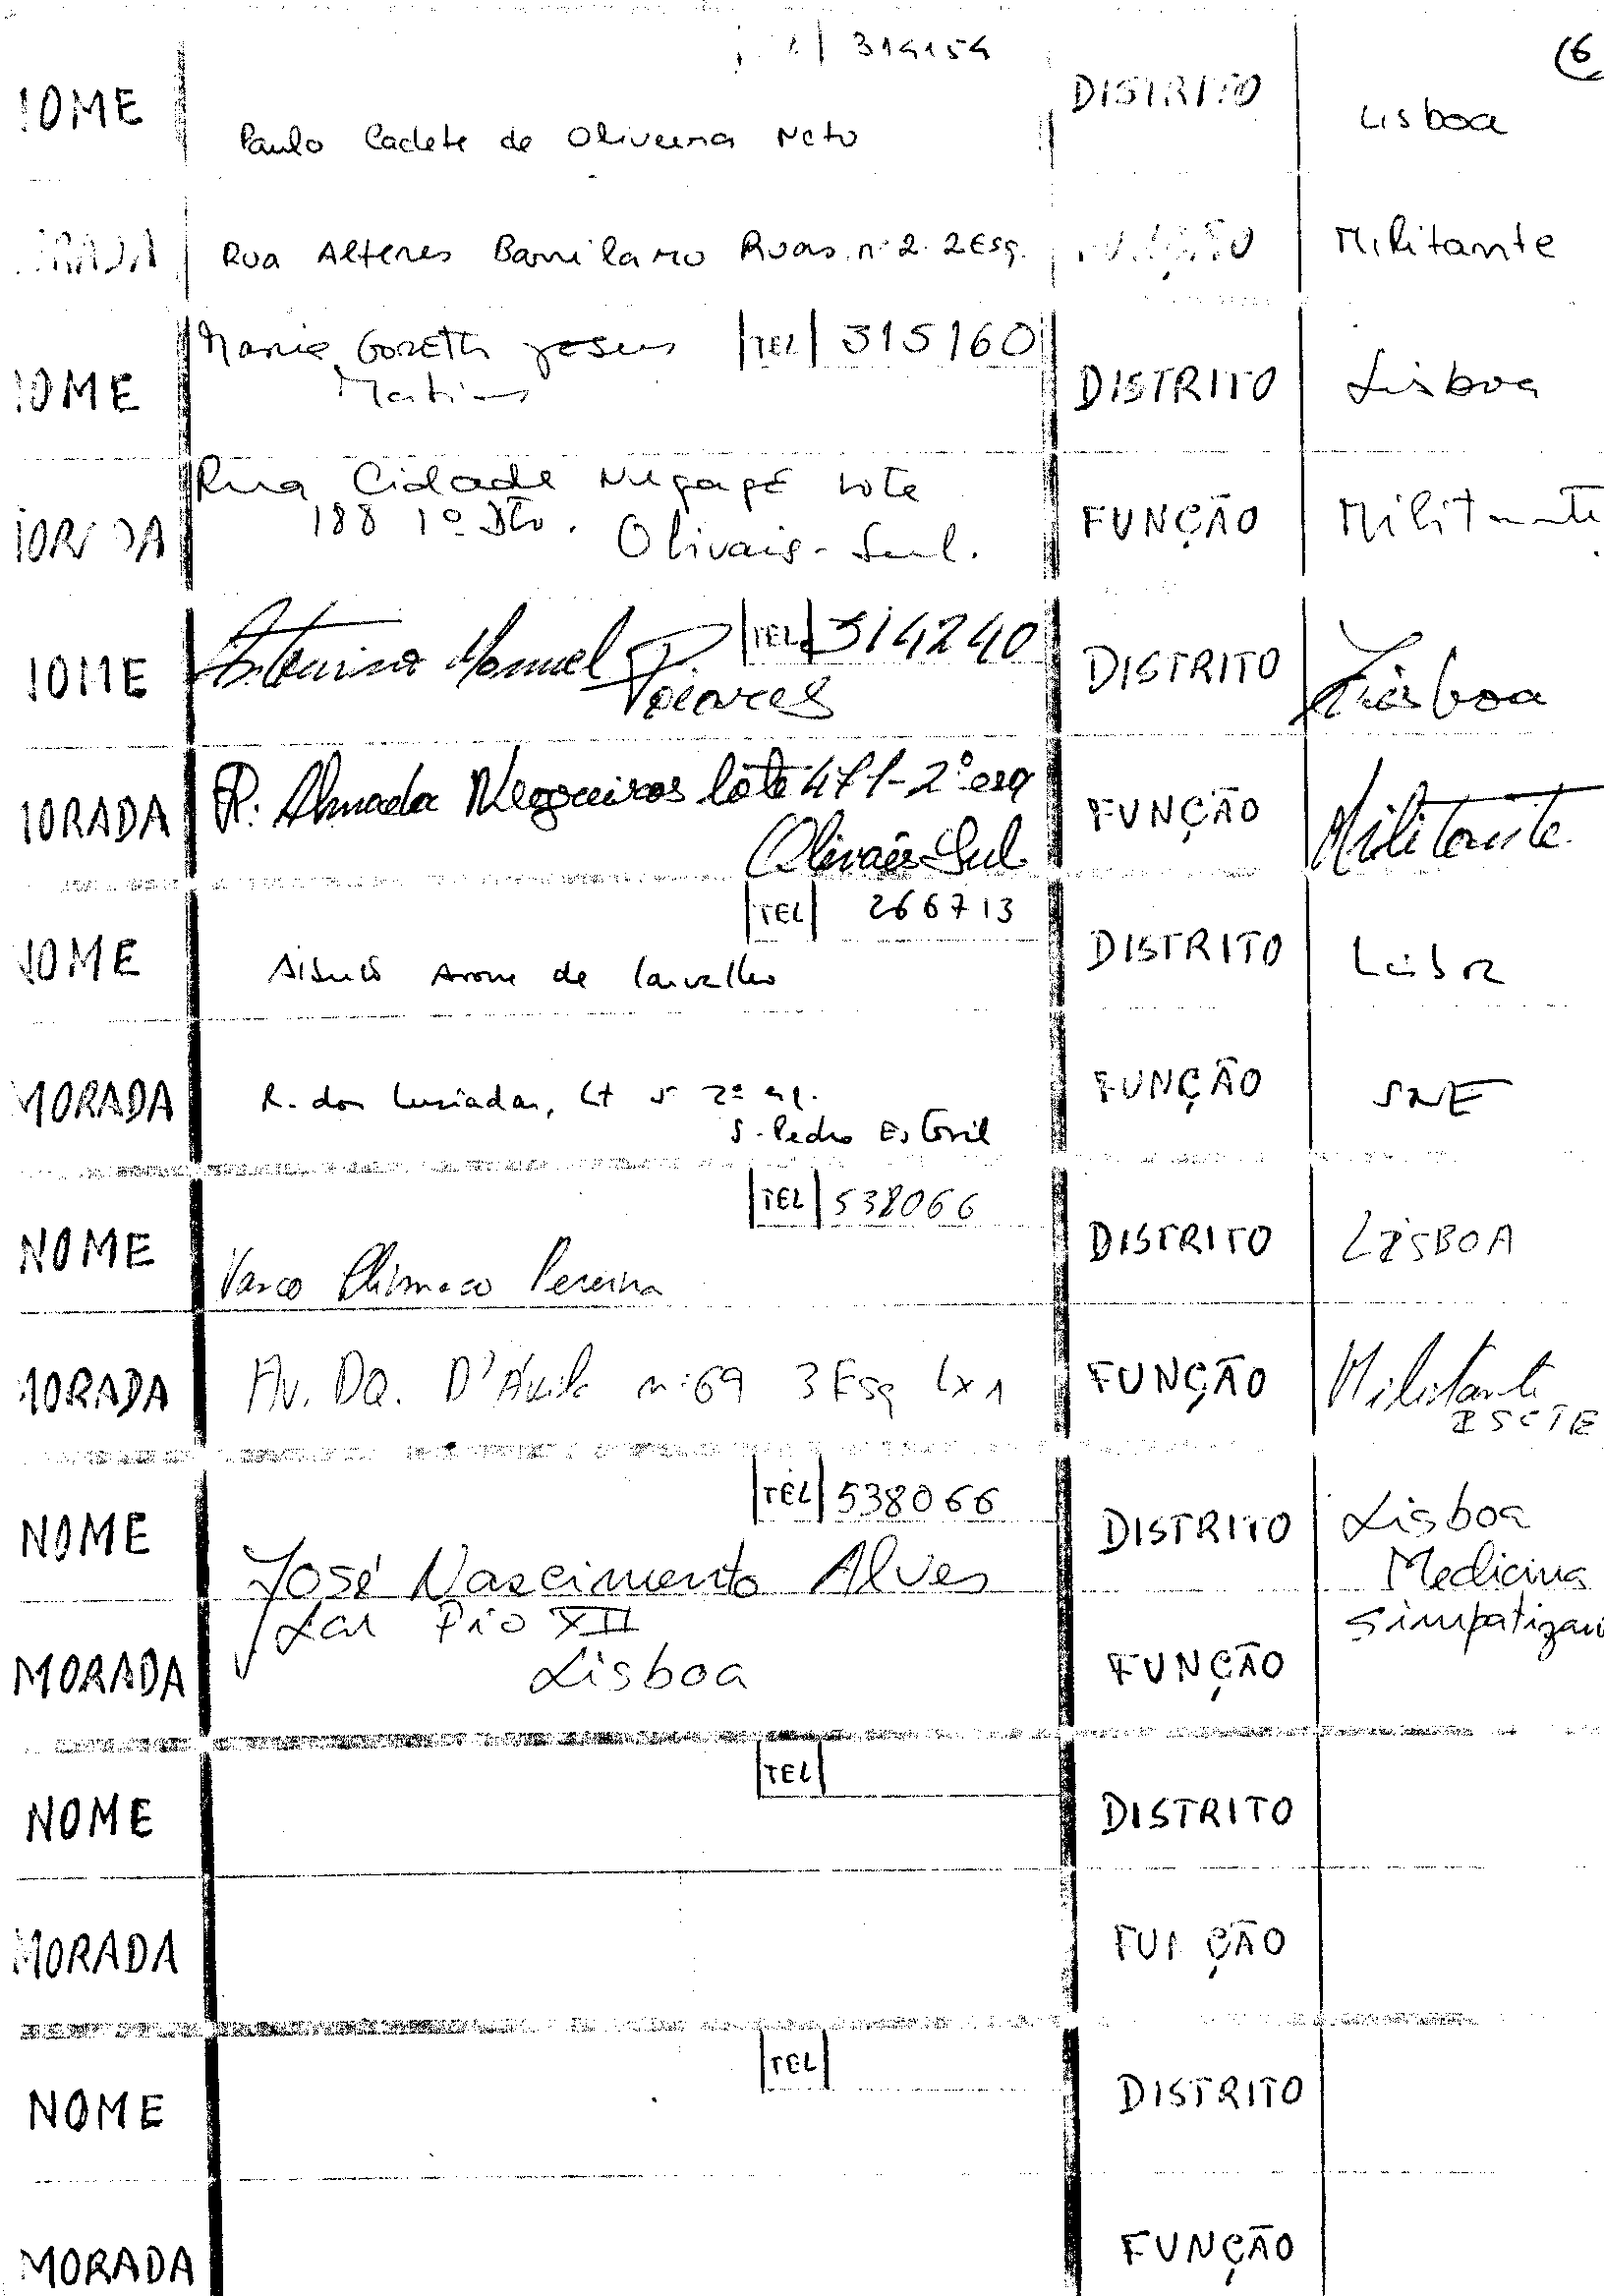 314154
(6
NOME Paulo Cadete de Oliveira Neto DISTRITO Lisboa
MORADA Rua Alferes Barrilaro Ruas nº 2. 2 Esq. FUNÇÃO Militante
Maria Goreth Jesus TEL 315160
NOME Martins DISTRITO Lisboa
Rua Cidade Negage lote
MORADA 188 1º Dto. Olivais-Sul. FUNÇÃO Militante
TEL 314240
NOME Manuel DISTRITO Lisboa
MORADA R. Almada Negreiros lote 471-2º esq FUNÇÃO Militante
Olivais Sul
TEL 266713
NOME Arons de Carvalho DISTRITO Lisboa
MORADA R. dos Lusíadas, Lt 5 2º esq. FUNÇÃO SNE
S. Pedro Estoril
TEL 538066
NOME Vasco Clímaco Pereira DISTRITO LISBOA
MORADA Av. Dq. D'Ávila nº 69 3 Esq Lx 1 FUNÇÃO Militante
ISCTE
TEL 538066
NOME José Nascimento Alves DISTRITO Lisboa
Medicina
MORADA Lar Pio XII FUNÇÃO
Lisboa
TEL
NOME DISTRITO
MORADA FUNÇÃO
TEL
NOME DISTRITO
MORADA FUNÇÃO